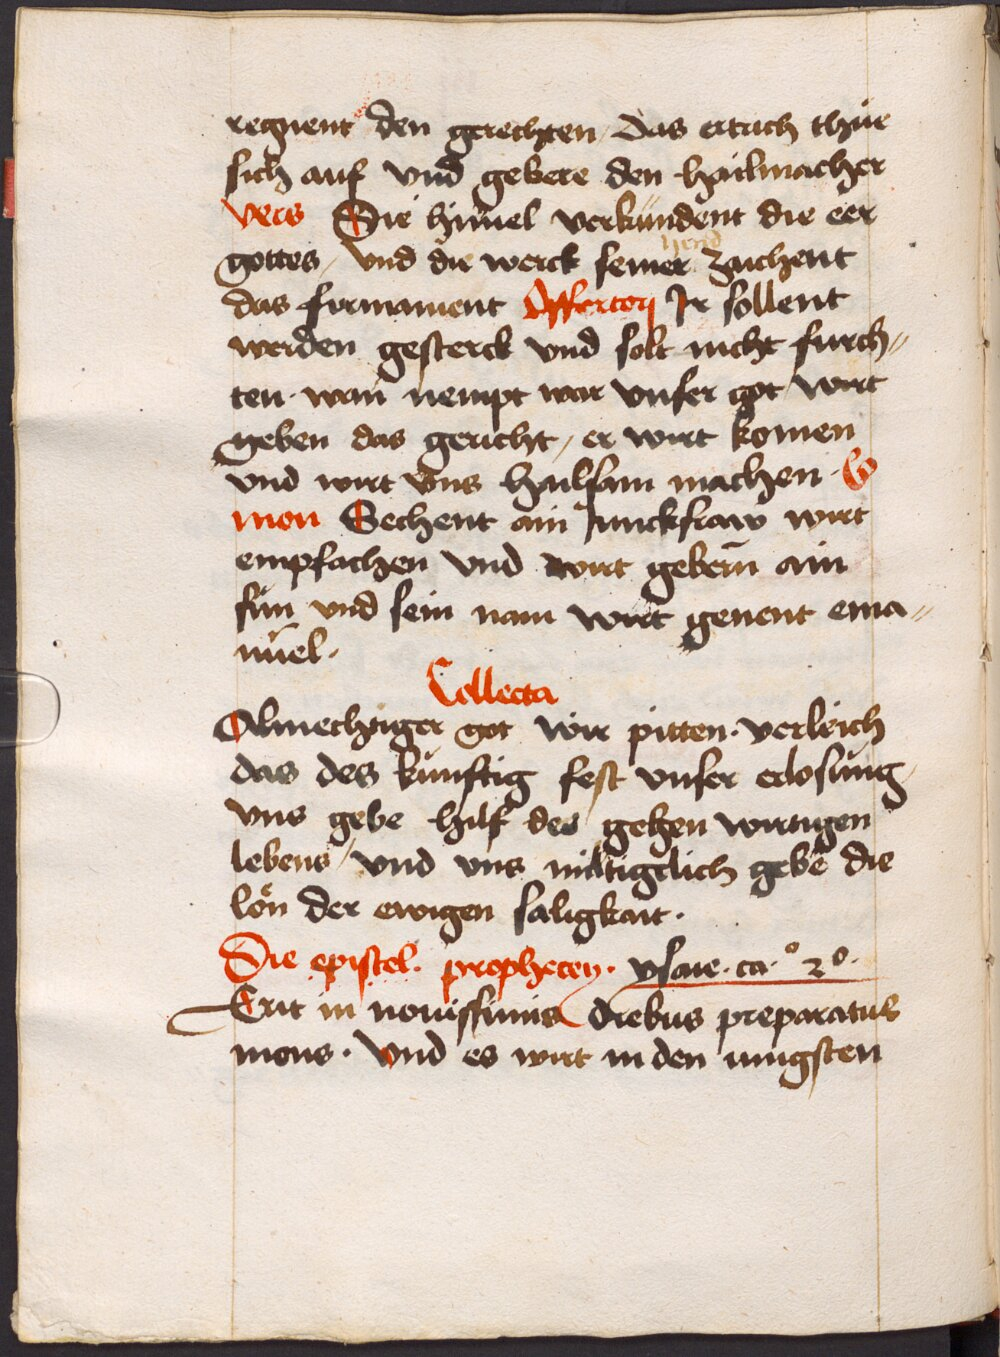 regnent den gerechten / Das ertrich thüe
sich auf vnd gebere den hailmacher
vers Die himel verkündent die eer
gottes / vnd die werck seiner hend zaichent
das firmament Offertorj Ir sollent
werden gesterck vnd solt nicht furch〃
ten · wan nempt war vnser got wirt
geben das gericht / er wirt komen
vnd wirt vns hailsam machen · Co
mon Sechent ain Junckfraw wirt
empfachen vnd wirt gebern ain
sun vnd sein nam wirt genent ema〃
nuel ·
Collecta
Almechtiger got wir pitten · verleich
das des künftig fest vnser erlosung /
vns gebe hilf des gegen wirtigen
lebens / vnd vns miltigclich gebe die
lön der ewigen saligkait ·
Die epistel · prophecey · ysaie · ca · º 2º ·
Erit in nouissimis diebus preparatus
mons · Vnd es wirt in den iungsten